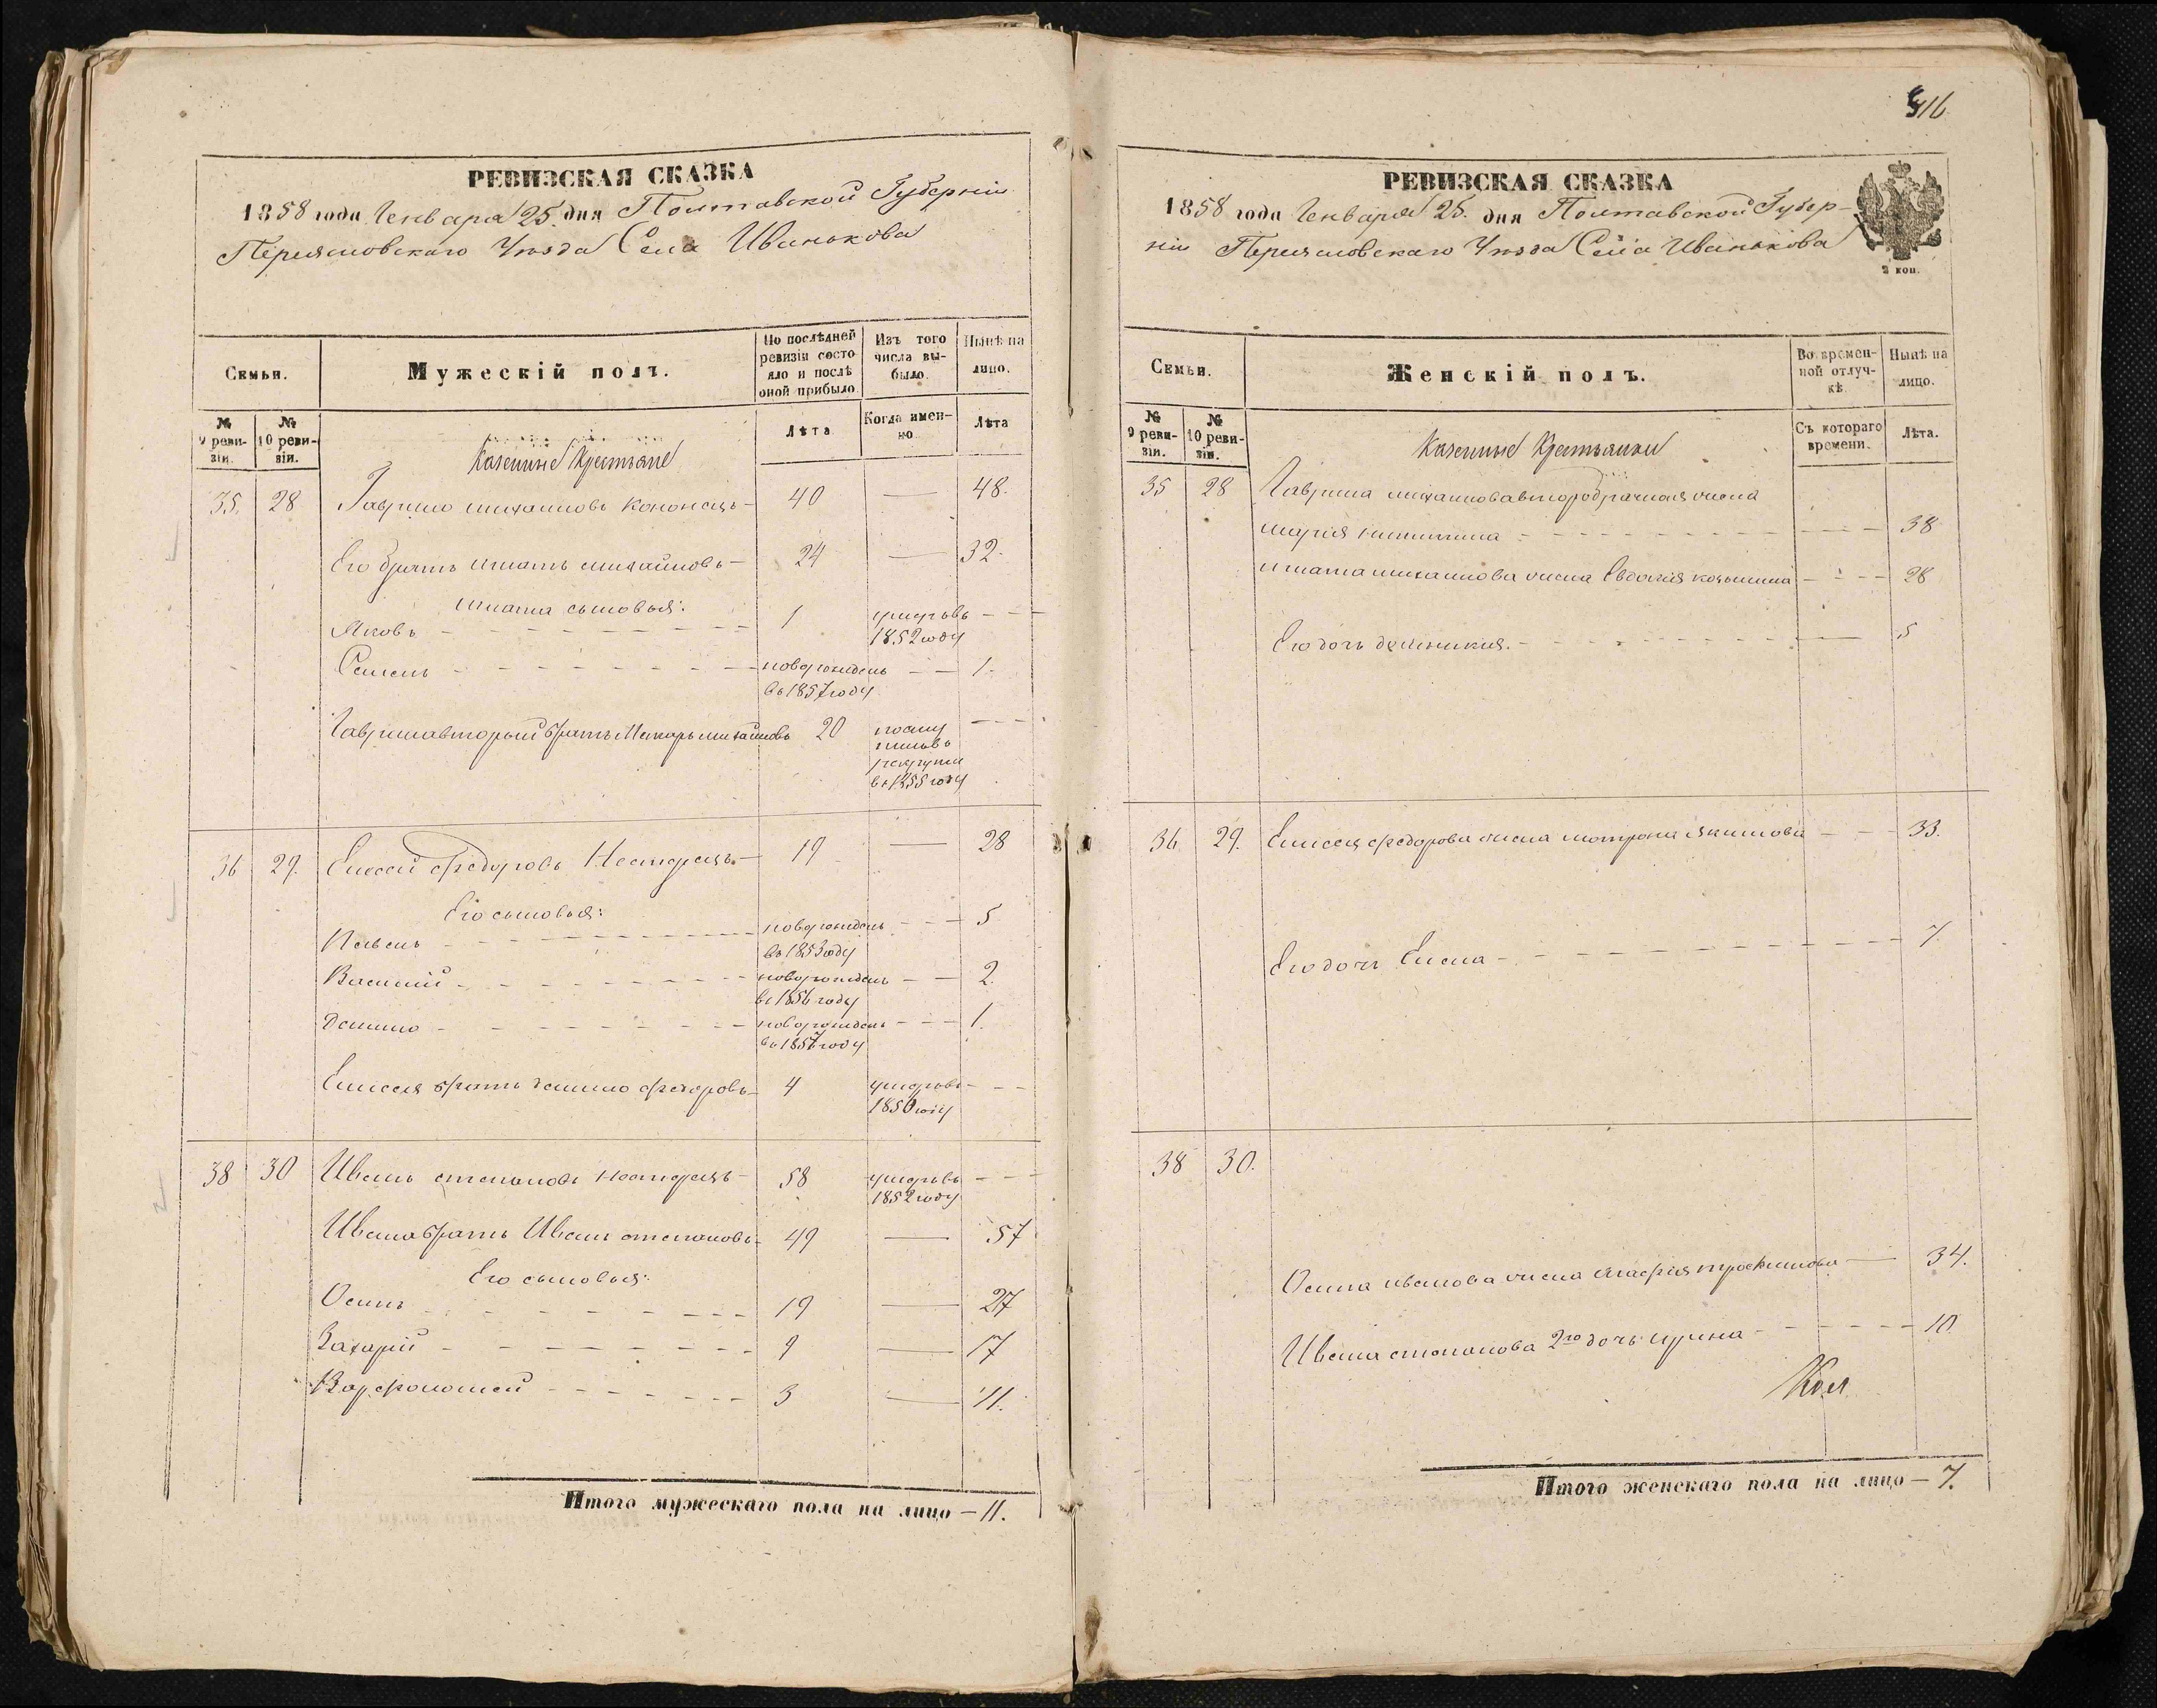 РЕВИЗСКАЯ СКАЗКА
1858 года Генваря 25. дня Полтавской Губерніи
Переяславского Уѣзда Села Иванькова
Семьи.
Мужескій полъ.
По послѣдней ревизіи состояло и послѣ оной прибыло.
Изъ того числа выбыло.
Нынѣ на лицо.
№ 9 ревизіи.
№ 10 ревизіи.
Лѣта
Когда именно
Лѣта
Казенные Крестьяне
35. 28 Гаврило Михайловъ Кононецъ 40 — 48.
Его братъ Игнатъ Михайловъ 24 — 32.
Игната сыновья:
Яковъ 1 умеръ въ 1852 году
Семенъ новорожденъ въ 1857 году 1.
Гаврила второй братъ Макаръ Михайловъ 20 въ рекруты въ 1855 году
36 29. Елисей Федоровъ Нестерецъ 19 — 28
Его сыновья:
новорожденъ въ 1853 году 5
Василій новорожденъ въ 1856 году 2.
Данило новорожденъ въ 1857 году 1.
Елисея братъ Данило Федоровъ 4 умеръ въ 1850 году
38 30 Иванъ Степановъ Нестерецъ 58 умеръ въ 1852 году
Ивана братъ Иванъ Степановъ 49 — 57
Его сыновья:
Осипъ 19 — 27
Захарій 9 — 17
Варфоломей 3 — 11.
Итого мужескаго пола на лицо — 11.
416
РЕВИЗСКАЯ СКАЗКА
1858 года Генваря 25. дня Полтавской Губерніи
Переяславскаго Уѣзда Села Иванькова
2 коп.
Семьи.
Женскій полъ.
Во временной отлучкѣ.
Нынѣ на лицо.
№ 9 ревизіи.
№ 10 ревизіи.
Съ котораго времени.
Лѣта.
Казенные Крестьянки
35 28 Гаврила Михайлова второбрачная жена
Марія Никитина 38
Игната Михайлова жена Евдокія 28
Его дочь 5
36 29. Елисея Федорова жена Мотрона Якимова 33.
Его дочь Елена 7.
38 30.
Осипа Иванова жена Агафія Трофимова 34.
Ивана Степанова 2го дочь Ирина 10
Итого женскаго пола на лицо — 7.